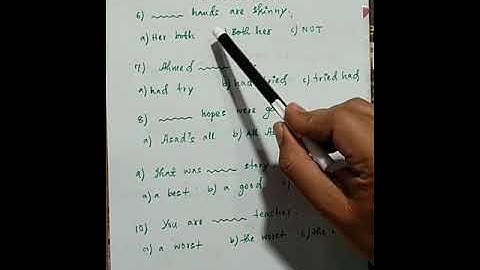 6) ~~~~ hands are skinny.
a) Her both b) Both her c) NOT
7) Ahmed ~~~~
a) had try b) had tried c) tried had
8) ~~~~ hopes were
a) Asad's all b) All
9) That was ~~~~ story
a) a best b) a good
10) You are ~~~~ teacher.
a) a worst b) the worst c) the